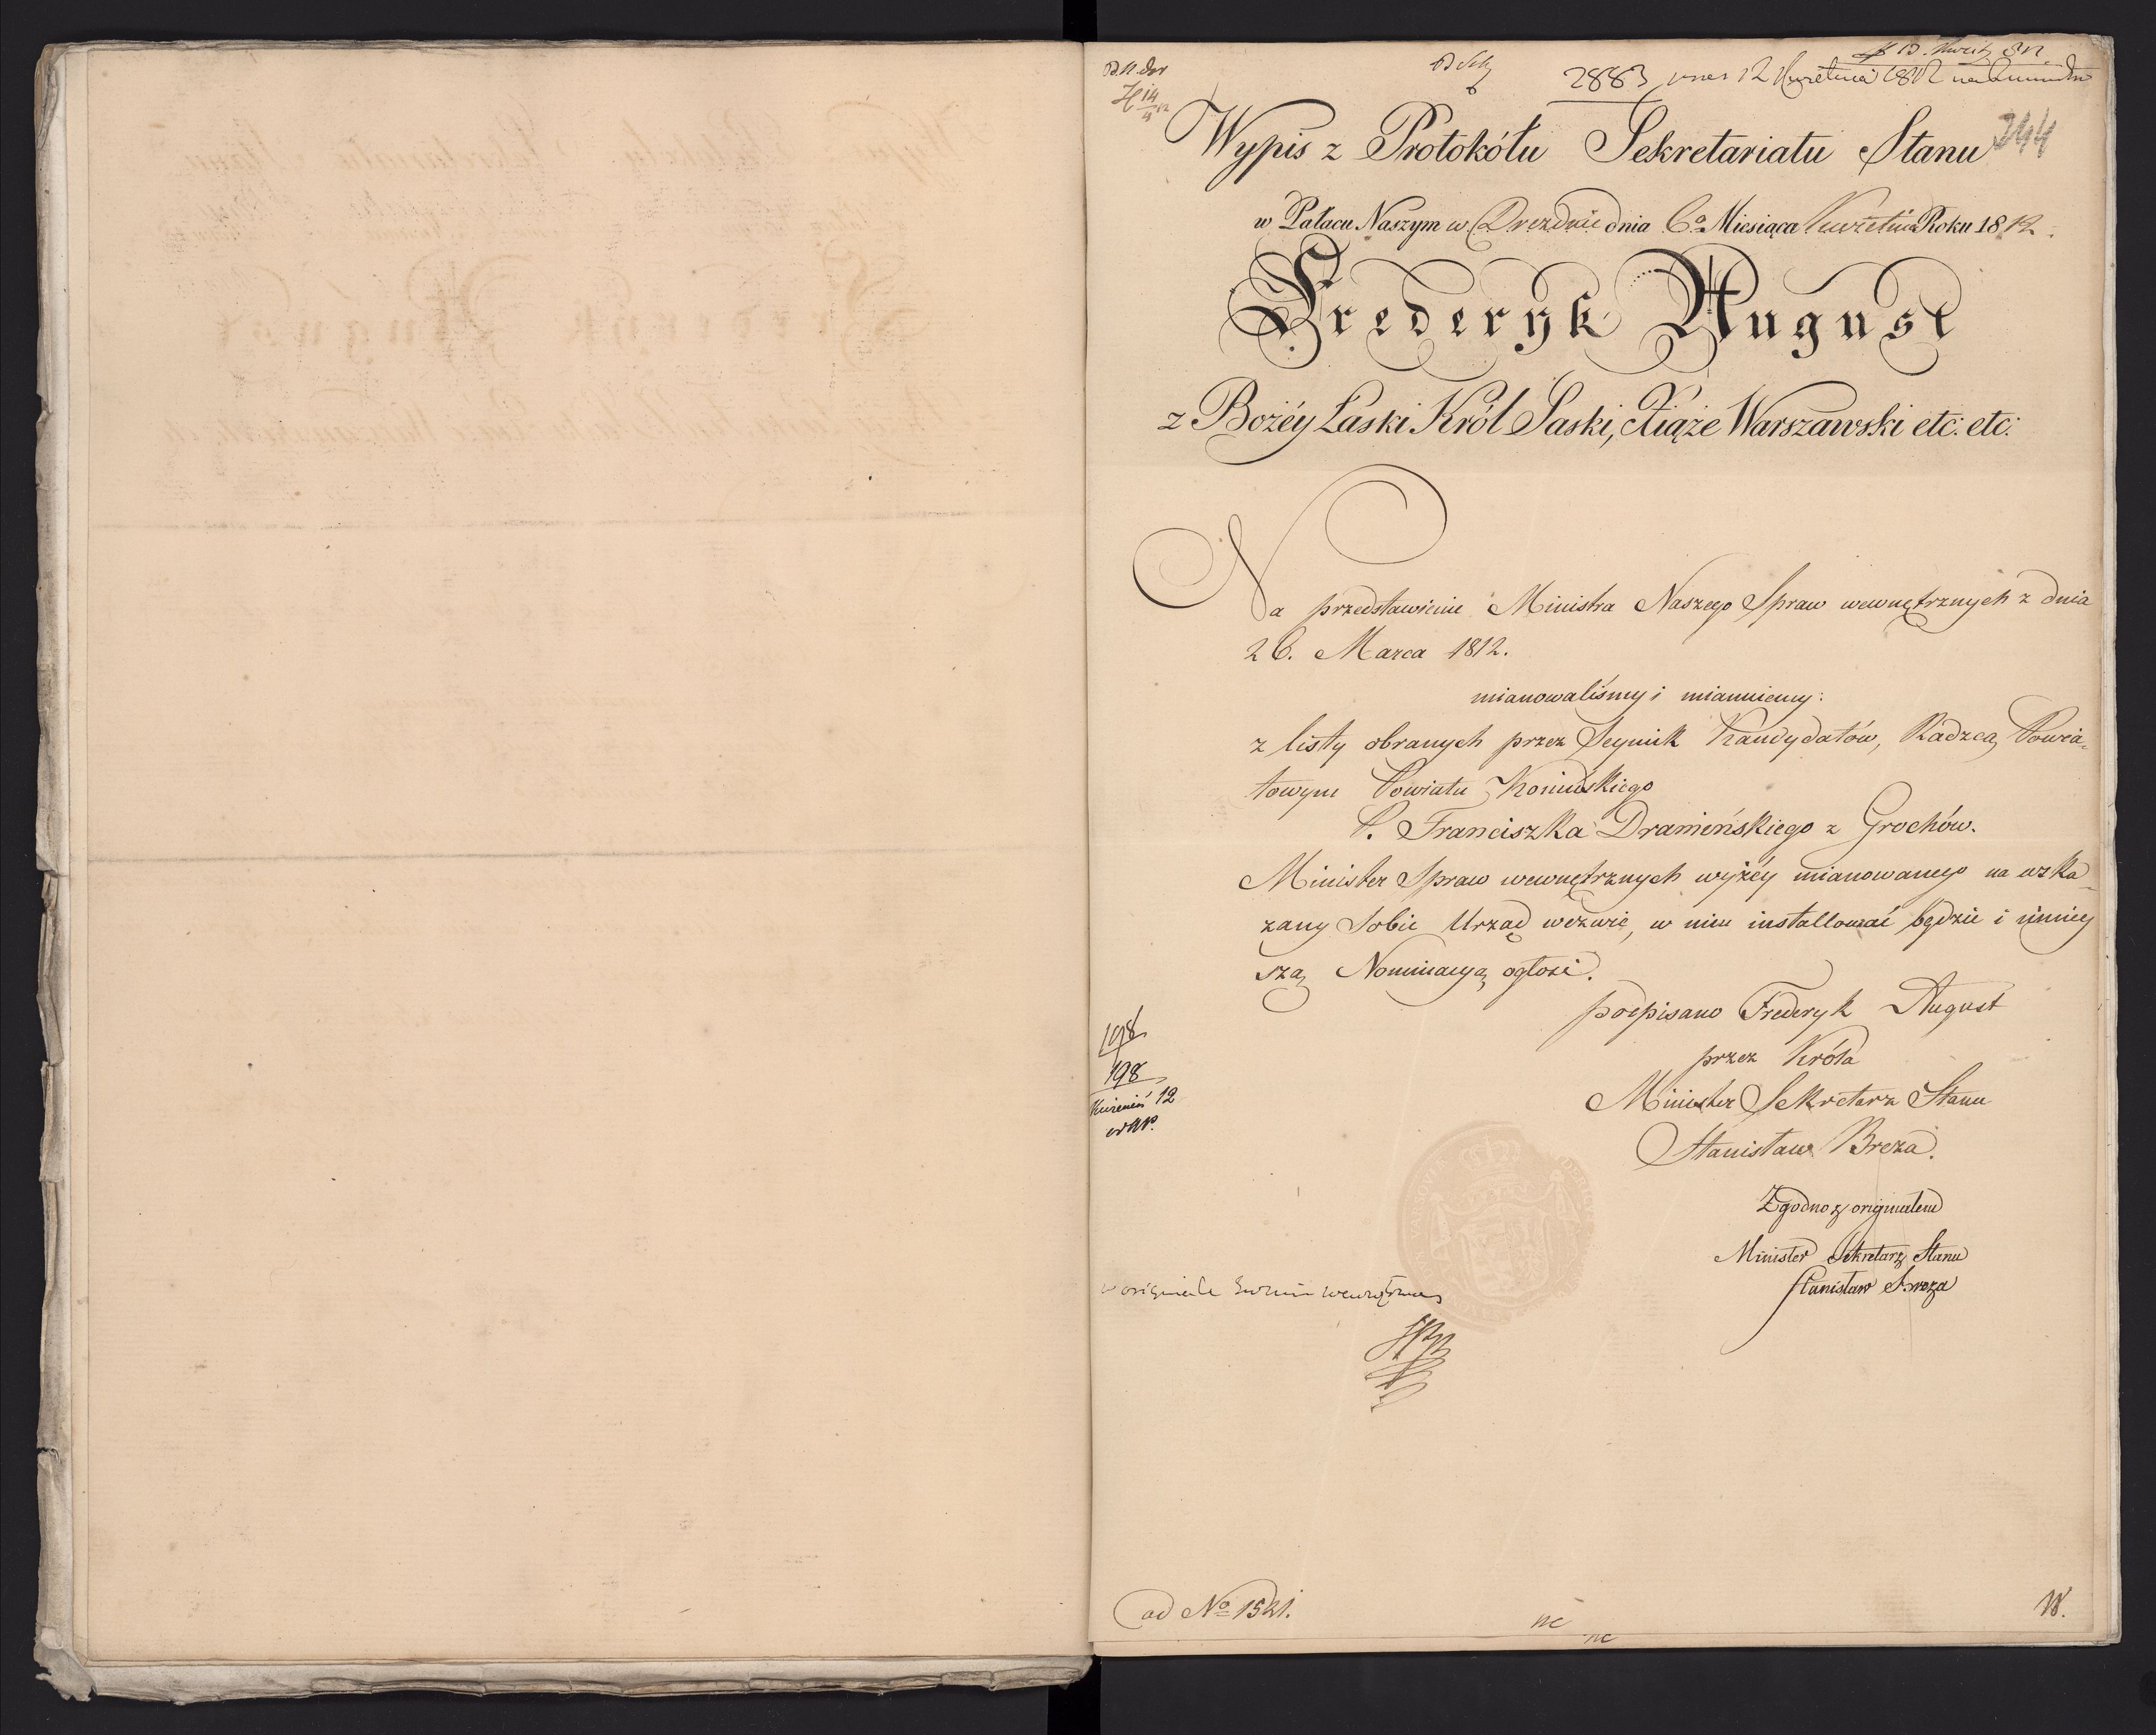 2883 12 Kwietnia 1812
244
Wypis z Protokółu Sekretariatu Stanu
w Pałacu Naszym w Dreznie dnia 6º Miesiąca Kwietnia Roku 1812.
Frederyk August
z Bożéy Łaski Król Saski, Xiąże Warszawski etc: etc:
Na przedstawienie Ministra Naszego Spraw wewnętrznych z dnia
26. Marca 1812.
mianowaliśmy i mianuiemy:
z listy obranych przez Seymik Kandydatów, Radzcą Powia=
towym Powiatu Konińskiego
P. Franciszka Dramińskiego z Grochów.
Minister Spraw wewnętrznych wyżéy mianowanego na wska=
zany Sobie Urząd wezwie, w nim installować będzie i niniey
szą Nominacyą ogłosi.
podpisano Frederyk August
przez Króla
Minister Sekretarz Stanu
Stanisław Breza.
198
198
Kwiecień 12
Zgodno z originałem
Minister Sekretarz Stanu
Stanisław Breza
w originale
ad Nº 1521.
nc
nc